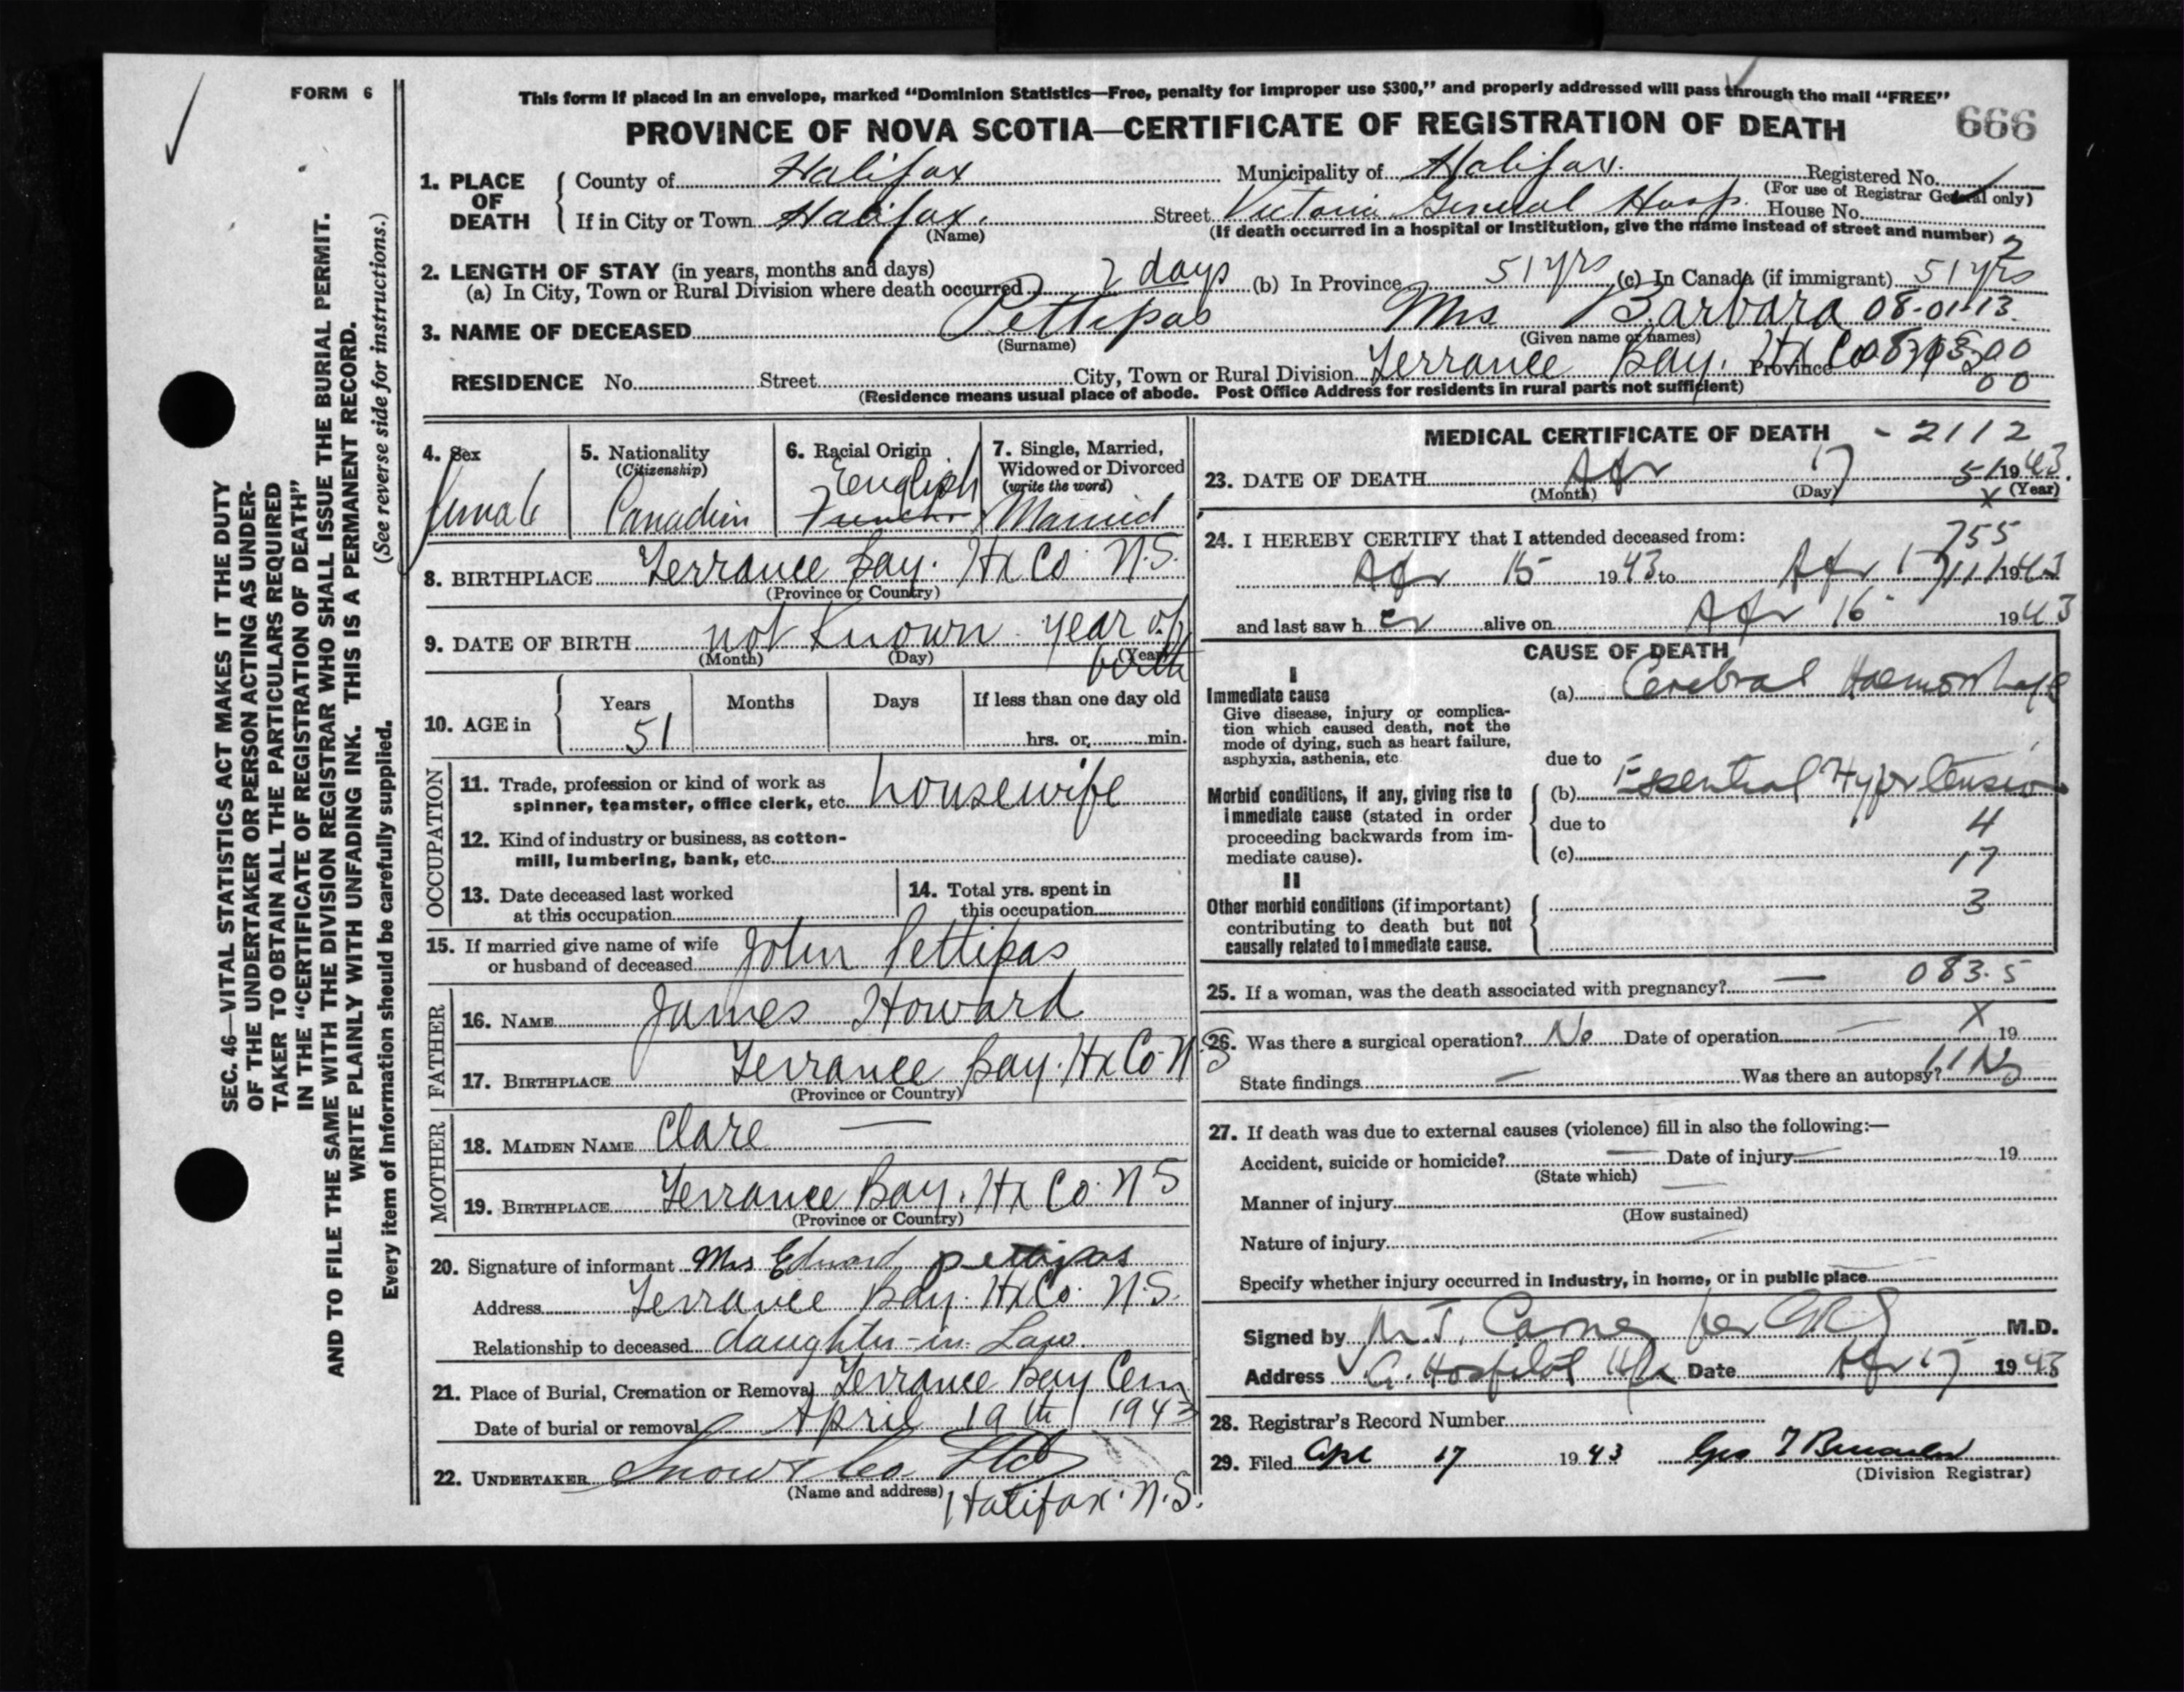 FORM 6
This form if placed in an envelope, marked “Dominion Statistics—Free, penalty for improper use $300,” and properly addressed will pass through the mail “FREE”
PROVINCE OF NOVA SCOTIA—CERTIFICATE OF REGISTRATION OF DEATH
666
1. PLACE OF DEATH
County of Halifax Municipality of Halifax. Registered No.
(For use of Registrar General only)
If in City or Town Halifax. Street Victoria General Hosp. House No.
(Name) (If death occurred in a hospital or Institution, give the name instead of street and number)
2
2. LENGTH OF STAY (in years, months and days)
(a) In City, Town or Rural Division where death occurred 2 days (b) In Province 51 yrs (c) In Canada (if immigrant) 51 yrs
3. NAME OF DECEASED Pettipas Mrs Barbara 08-01-13.
(Surname) (Given name or names)
RESIDENCE No. Street City, Town or Rural Division Terrance Bay. Hx Co Province
00
(Residence means usual place of abode. Post Office Address for residents in rural parts not sufficient)
4. Sex female
5. Nationality (Citizenship) Canadian
6. Racial Origin English French
7. Single, Married, Widowed or Divorced (write the word) Married
8. BIRTHPLACE Terrance Bay. Hx Co N.S.
(Province or Country)
9. DATE OF BIRTH not known year of birth
(Month) (Day) (Year)
10. AGE in Years Months Days If less than one day old
51 hrs. or min.
OCCUPATION
11. Trade, profession or kind of work as spinner, teamster, office clerk, etc. housewife
12. Kind of industry or business, as cotton-mill, lumbering, bank, etc.
13. Date deceased last worked at this occupation
14. Total yrs. spent in this occupation
15. If married give name of wife or husband of deceased John Pettipas
FATHER
16. NAME James Howard
17. BIRTHPLACE Terrance Bay. Hx Co. N.S
(Province or Country)
MOTHER
18. MAIDEN NAME Clare —
19. BIRTHPLACE Terrance Bay. Hx Co. N S
(Province or Country)
20. Signature of informant Mrs Edward pettipas
Address Terrance Bay. Hx Co. N.S.
Relationship to deceased daughter-in-Law.
21. Place of Burial, Cremation or Removal Terrance Bay Cem
Date of burial or removal April 19th 1943
22. UNDERTAKER Snow & Co. Ltd
(Name and address) Halifax. N.S.
MEDICAL CERTIFICATE OF DEATH - 2112
23. DATE OF DEATH Apr 17 1943.
(Month) (Day) (Year)
51
x
24. I HEREBY CERTIFY that I attended deceased from:
755
Apr 15 1943 to Apr 17 1943
and last saw her alive on Apr 16 1943
CAUSE OF DEATH
I
Immediate cause
Give disease, injury or complication which caused death, not the mode of dying, such as heart failure, asphyxia, asthenia, etc.
(a) Cerebral Haemorrhage
due to
Morbid conditions, if any, giving rise to immediate cause (stated in order proceeding backwards from immediate cause).
(b) Essential Hypertension
due to 4
(c) 17
II
Other morbid conditions (if important) contributing to death but not causally related to immediate cause.
3
25. If a woman, was the death associated with pregnancy? — 083.5
26. Was there a surgical operation? No Date of operation — X 19
State findings — Was there an autopsy? No
27. If death was due to external causes (violence) fill in also the following:—
Accident, suicide or homicide? — Date of injury — 19
(State which)
Manner of injury —
(How sustained)
Nature of injury —
Specify whether injury occurred in Industry, in home, or in public place
Signed by M.D.
Address V. G. Hospital Hfx Date Apr 17 1943
28. Registrar's Record Number
29. Filed Apl 17 1943
(Division Registrar)
SEC. 46—VITAL STATISTICS ACT MAKES IT THE DUTY
OF THE UNDERTAKER OR PERSON ACTING AS UNDER-
TAKER TO OBTAIN ALL THE PARTICULARS REQUIRED
IN THE “CERTIFICATE OF REGISTRATION OF DEATH”
AND TO FILE THE SAME WITH THE DIVISION REGISTRAR WHO SHALL ISSUE THE BURIAL PERMIT.
WRITE PLAINLY WITH UNFADING INK. THIS IS A PERMANENT RECORD.
Every item of information should be carefully supplied. (See reverse side for instructions.)